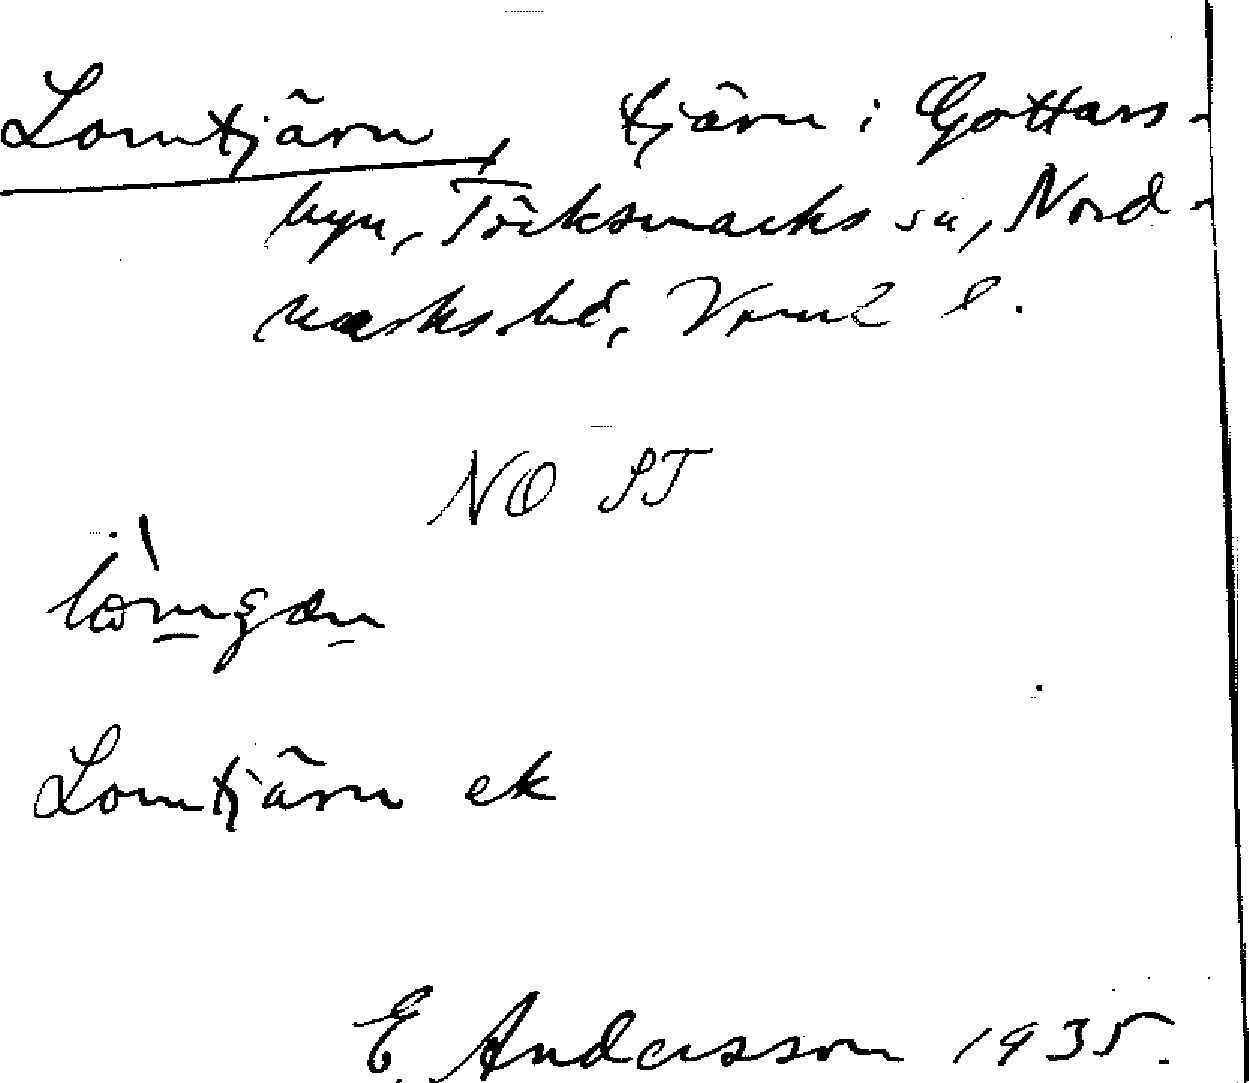 Lomtjärn, tjärn i Gottars-
byn, Töcksmarks sn, Nord-
marks hd, Värml l.
NO ST
Lomtjärn ek
E. Andersson 1935.